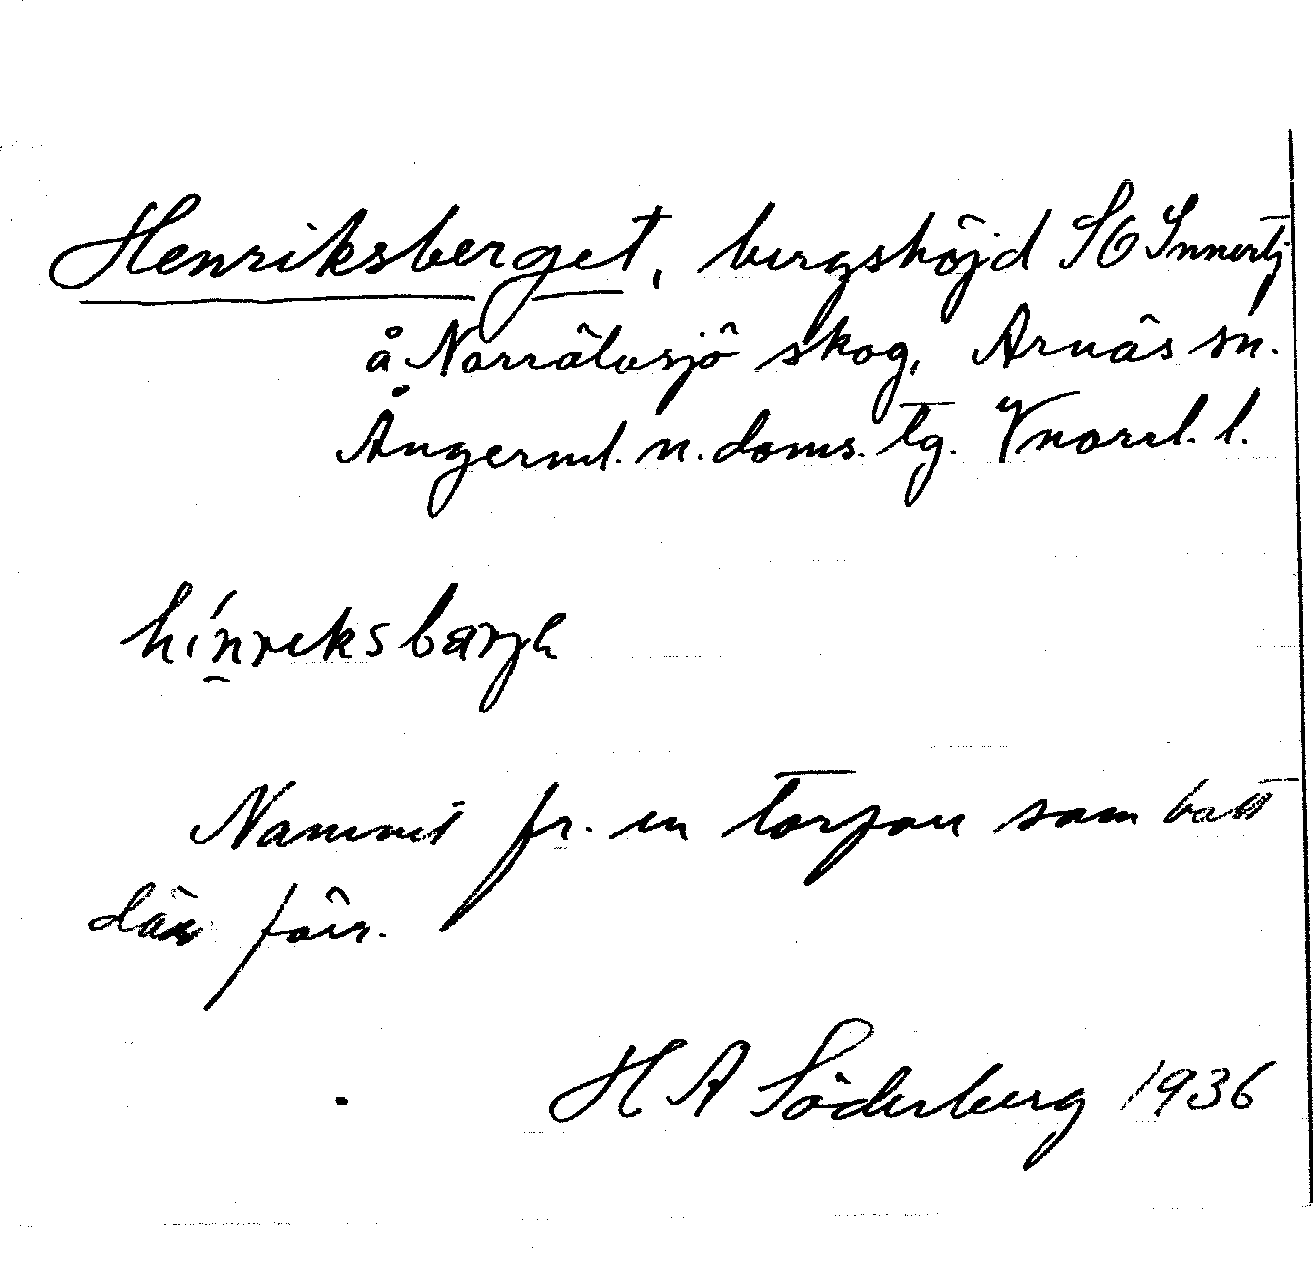 Henriksberget, bergshöjd SO Innertj
å Norrälvsjö skog, Arnäs sn.
Ångerml. n. doms. tg. Vnorrl. l.
hinriksbarje
Namnet fr. en torpare som bott
där förr.
H A Söderberg 1936